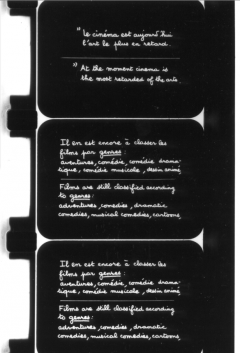 " Le cinéma est aujourd'hui
l'art le plus en retard.
" At the moment cinema is
the most retarded of the arts.
Il en est encore à classer les
films par genres :
aventures, comédie, comédie drama-
tique, comédie musicale, dessin animé
Films are still classified according
to genres :
adventures, comedies, dramatic
comedies, musical comedies, cartoons,
Il en est encore à classer les
films par genres :
aventures, comédie, comédie drama-
tique, comédie musicale, dessin animé
Films are still classified according
to genres :
adventures, comedies, dramatic
comedies, musical comedies, cartoons,